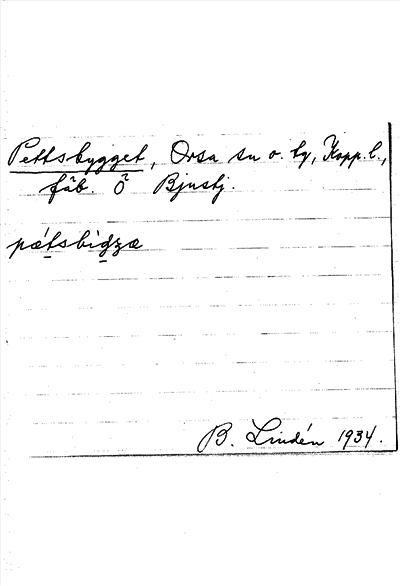 Pettsbygget, Orsa sn o. tg, Kopp. l.,
fäb. Ö Bjusbj.
pæ̀tsbìdzæ
B. Lindén 1934.